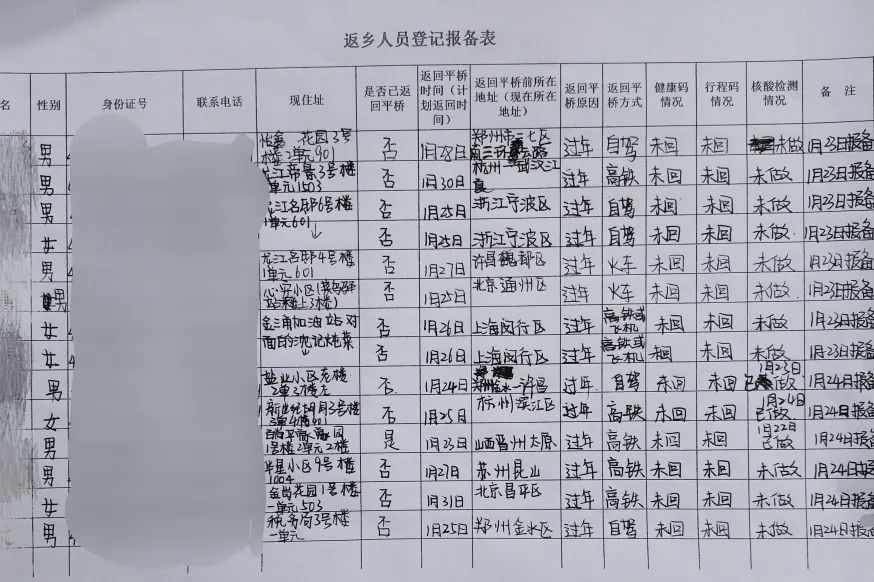 返乡人员登记报备表
名 性别 身份证号 联系电话 现住址 是否已返回平桥 返回平桥时间（计划返回时间） 返回平桥前所在地址（现在所在地址） 返回平桥原因 返回平桥方式 健康码情况 行程码情况 核酸检测情况 备 注
男 花园3号楼2单元901 否 1月28日 郑州市二七区 过年 自驾 未回 未回 未做 1月23日报备
男 龙江帝景3号楼 单元1503 否 1月30日 杭州 过年 高铁 未回 未回 未做 1月23日报备
男 龙江名邸6号楼 1单元601 否 1月25日 浙江宁波区 过年 自驾 未回 未回 未做 1月23日报备
女 ↓ 否 1月25日 浙江宁波区 过年 自驾 未回 未回 未做 1月23日报备
男 龙江名邸4号楼 1单元601 否 1月27日 许昌魏都区 过年 火车 未回 未回 未做 1月23日报备
男 心安小区 否 1月25日 北京通州区 过年 火车 未回 未回 未做 1月23日报备
女 金三角加油站对面的沈记炖菜 否 1月26日 上海闵行区 过年 高铁或飞机 未回 未回 未做 1月23日报备
女 ↓ 否 1月26日 上海闵行区 过年 高铁或飞机 未回 未回 未做 1月23日报备
男 盐业小区老楼 2单3楼左 否 1月24日 许昌 过年 自驾 未回 未回 1月23日 已做 1月24日报备
女 3号 否 1月25日 杭州滨江区 过年 高铁 未回 未回 1月24日 已做 1月24日报备
女 1号楼2单元2楼 是 1月23日 山西晋州太原 过年 高铁 未回 未回 1月22日 已做 1月24日报备
男 华星小区9号楼 1004 否 1月27日 苏州昆山 过年 高铁 未回 未回 未做 1月24日报备
女 金尚花园1号楼 一单元503 否 1月31日 北京昌平区 过年 高铁 未回 未回 未做 1月24日报备
男 税务局3号楼 一单元 否 1月25日 郑州金水区 过年 自驾 未回 未回 未做 1月24日报备